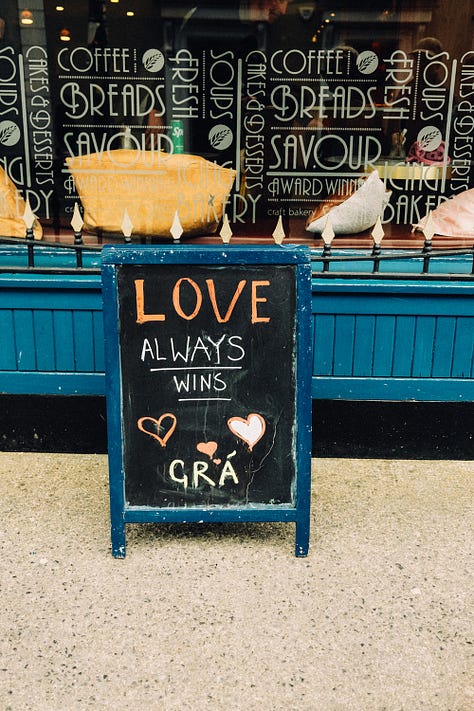 COFFEE
BREADS
SAVOUR
AWARD WIN
craft
FRESH
SOUPS
CAKES & DESSERTS
COFFEE
BREADS
SAVOUR
AWARD WINN
craft bakery
FRESH
SOUPS
CAKES & DESSERTS
BAKERY
LOVE
ALWAYS
WINS
GRÁ